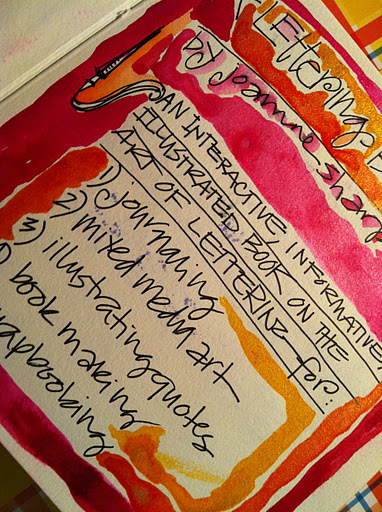 Lettering
by joanne sharp
AN INTERACTIVE, INFORMATIVE
ILLUSTRATED BOOK ON THE
ART OF LETTERING for:
1) journaling
2) mixed media art
3) illustrating quotes
) book making
rapbooking